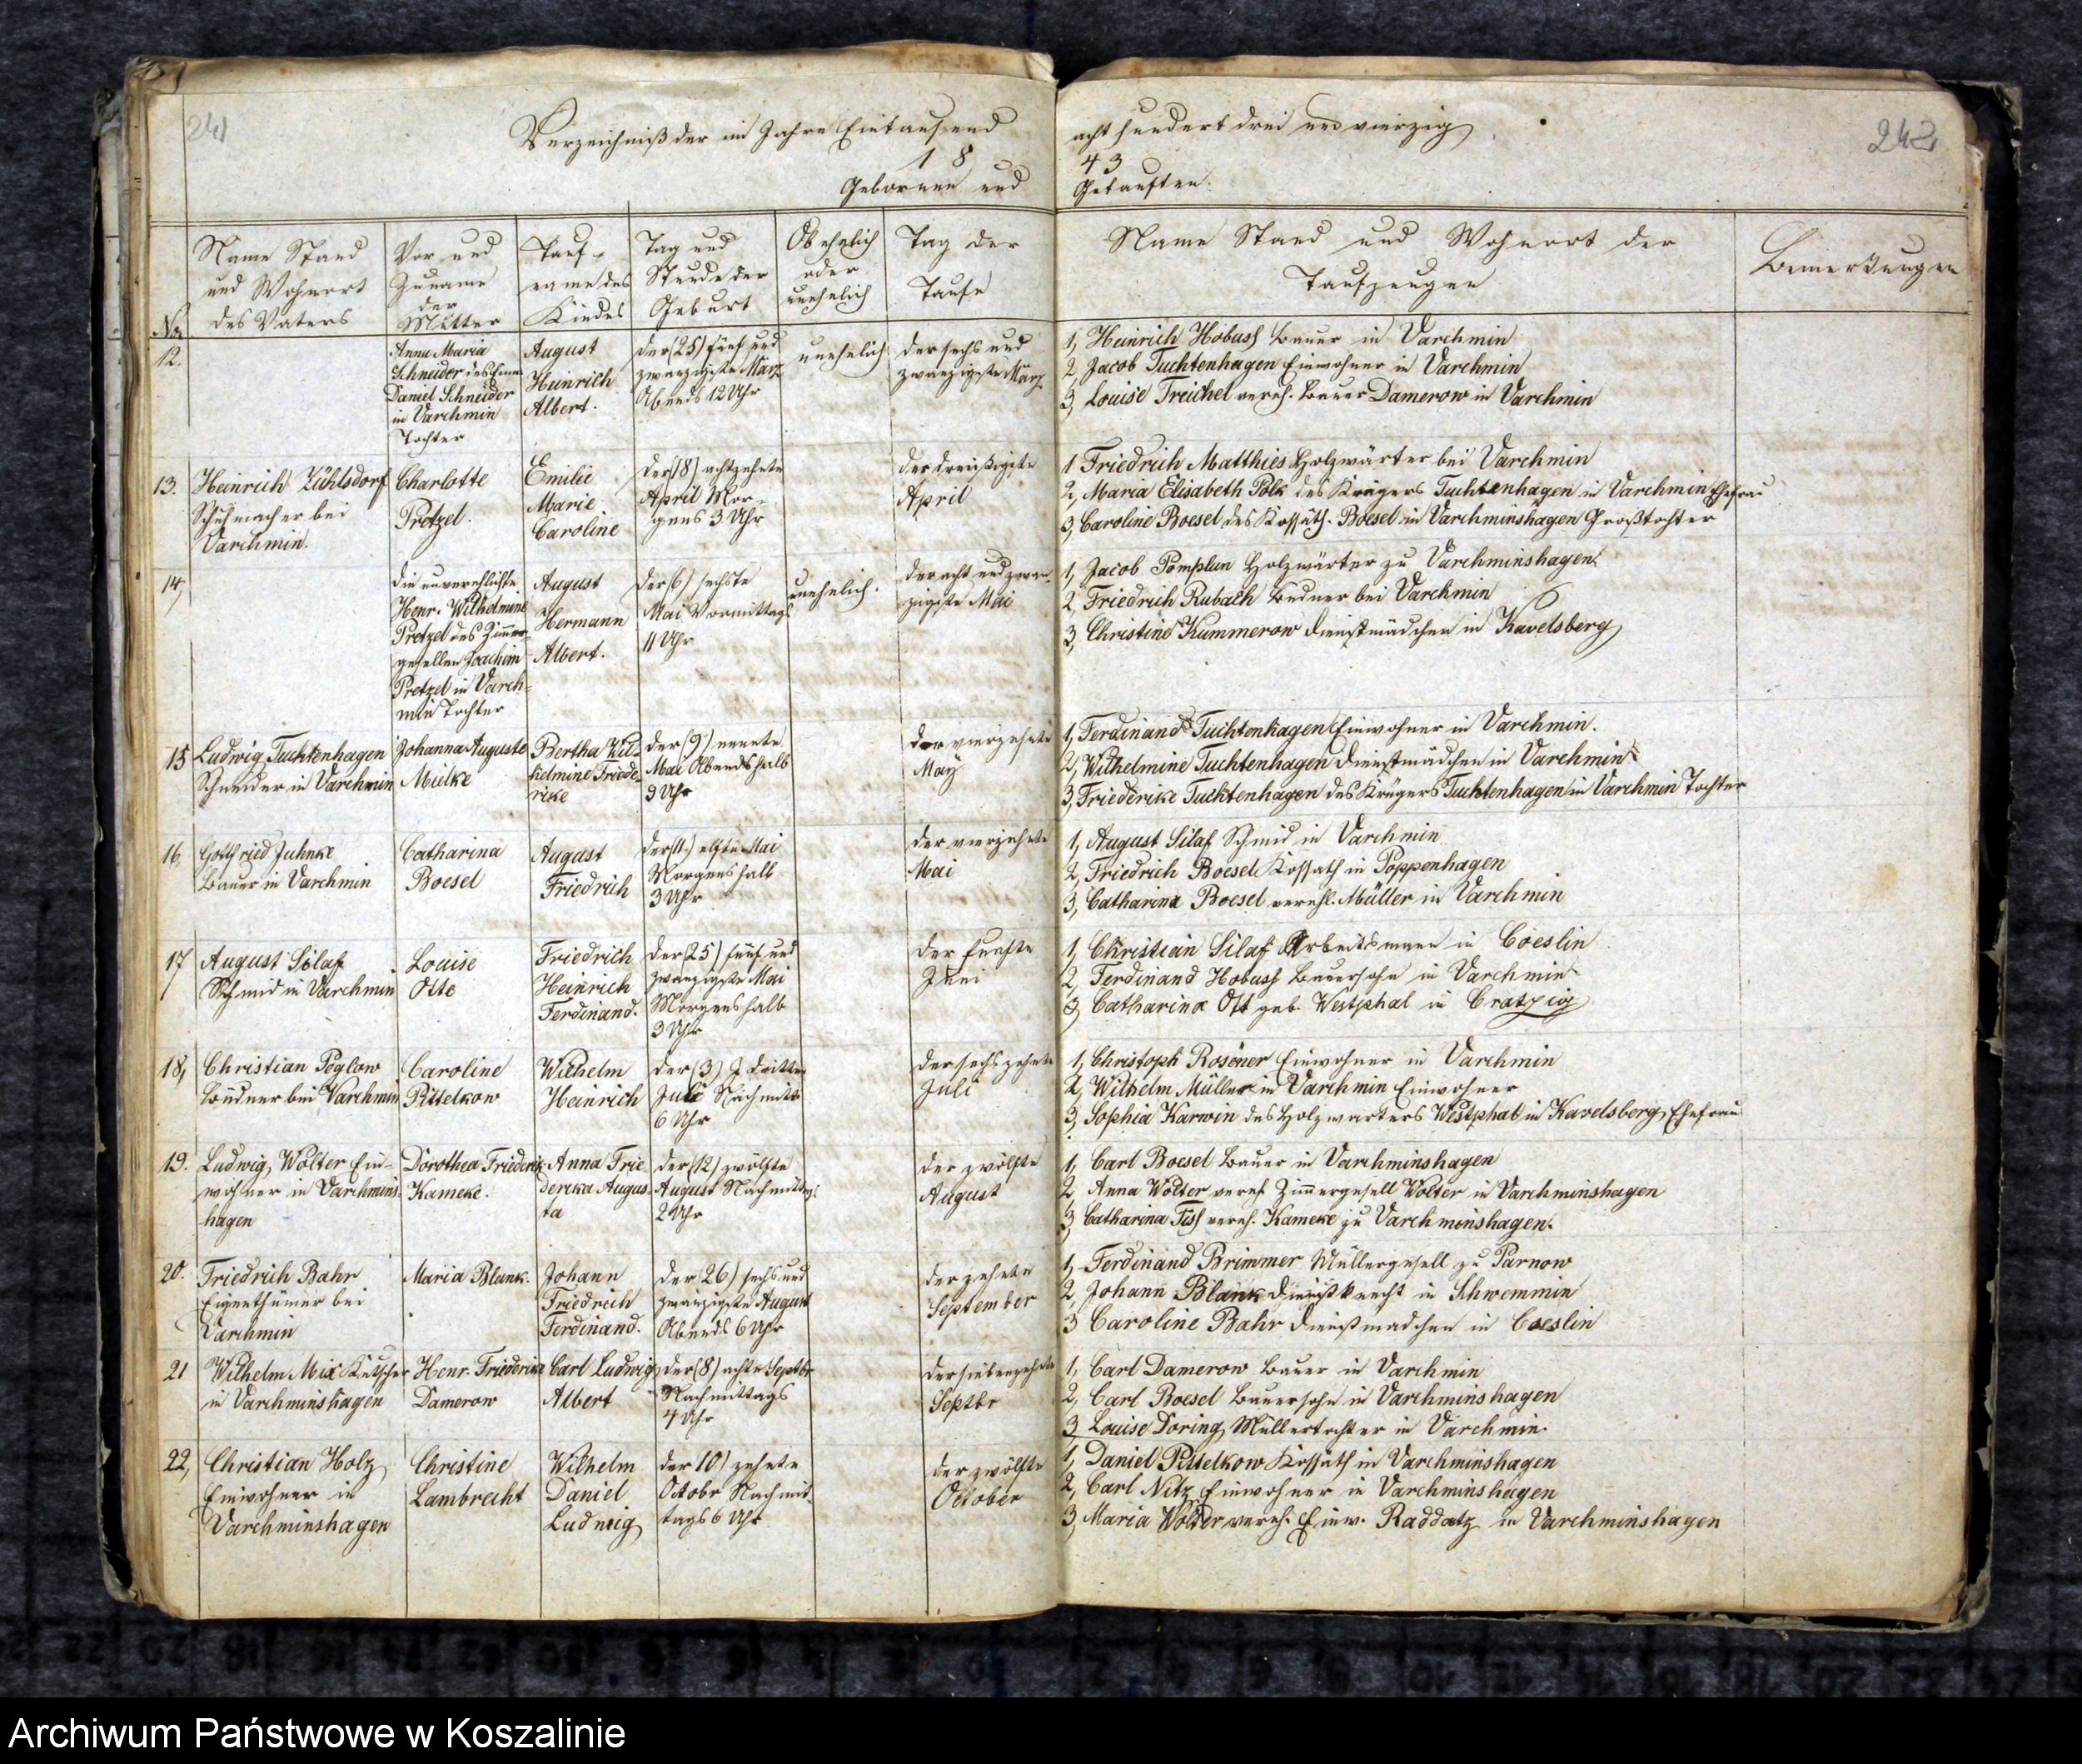 241
Verzeichniß der im Jahre Eintausend
18
Gebornen und
acht hundert drei und vierzig
43
Getauften.
242
No
Name Stand
und Wohnort
des Vaters
Vor und
Zuname
der
Mutter
Tauf-
name des
Kindes
Tag und
Stunde der
Geburt
Ob ehelich
oder
unehelich
Tag der
Taufe
Name Stand und Wohnort der
Taufzeugen
Bemerkungen
12.
Anna Maria
Schneider des Einw.
Daniel Schneider
in Varchmin
Tochter
August
Heinrich
Albert.
der (25) fünf und
zwanzigste März
Abends 12 Uhr
unehelich
der sechs und
zwanzigste März
1, Heinrich Hobuss Bauer in Varchmin
2, Jacob Tuchtenhagen Einwohner in Varchmin
3, Louise Treichel vereh. Bauer Damerow in Varchmin
13.
Heinrich Zühlsdorf
Schuhmacher bei
Varchmin.
Charlotte
Pretzel.
Emilie
Marie
Caroline
der (18) achtzehnte
April Mor-
gens 3 Uhr
der dreißigste
April
1 Friedrich Matthies Holzwärter bei Varchmin
2, Maria Elisabeth Polk des Krügers Tuchtenhagen in Varchmin Ehefrau
3, Caroline Boesel des Kossäth. Boesel in Varchminshagen Großtochter
14,
die unverehlichte
Henr. Wilhelmine
Pretzel des Zimmer-
gesellen Joachim
Pretzel in Varch-
min Tochter
August
Hermann
Albert.
der (6) sechste
Mai Vormittags
11 Uhr
unehelich.
der acht und zwan-
zigste Mai
1, Jacob Pomplun Holzwärter zu Varchminshagen
2, Friedrich Rubach Büdner bei Varchmin
3, Christine Kummerow Dienstmädchen in Kavelsberg
15
Ludwig Tuchtenhagen
Schneider in Varchmin
Johanna Auguste
Mielke
Bertha Wil-
helmine Friede-
rike
der (9) neunte
Mai Abends halb
9 Uhr
der vierzehnte
May
1, Ferdinand Tuchtenhagen Einwohner in Varchmin.
2, Wilhelmine Tuchtenhagen Dienstmädchen in Varchmin
3, Friederike Tuchtenhagen des Krügers Tuchtenhagen in Varchmin Tochter
16,
Gottfried Juhnke
Bauer in Varchmin
Catharina
Boesel
August
Friedrich
der (11.) elfte Mai
Morgens halb
3 Uhr
der vierzehnte
Mai
1, August Silaf Schmid in Varchmin
2, Friedrich Boesel Kossath in Poppenhagen
3, Catharina Boesel verehl. Müller in Varchmin
17
August Silaf
Schmid in Varchmin
Louise
Otte
Friedrich
Heinrich
Ferdinand.
der (25) fünf und
zwanzigste Mai
Morgens halb
3 Uhr
der fünfte
Juni
1, Christian Silaf Arbeitsmann in Coeslin
2, Ferdinand Hobuss Bauersohn in Varchmin
3, Catharina Ott geb. Westphal in Cratzig
18,
Christian Poglow
Büdner bei Varchmin
Caroline
Pittelkow
Wilhelm
Heinrich
der (3) dritte
Juli Nachmitt.
6 Uhr
der sechszehnte
Juli
1, Christoph Rosener Einwohner in Varchmin
2, Wilhelm Müller in Varchmin Einwohner
3, Sophia Karwin des Holzwarters Westphal in Kavelsberg Ehefrau
19.
Ludwig Wolter Ein-
wohner in Varchmins-
hagen
Dorothea Friederik
Kameke.
Anna Frie
derika Augus
ta
der (12) zwölfte
August Nachmittags
2 Uhr
der zwölfte
August
1, Carl Boesel Bauer in Varchminshagen
2, Anna Wolter vereh. Zimmergesell Wolter in Varchminshagen
3, Catharina Tiss vereh. Kameke zu Varchminshagen.
20.
Friedrich Bahr
Eigenthümer bei
Varchmin
Maria Blank.
Johann
Friedrich
Ferdinand.
der 26) sechs und
zwanzigste August
Abends 6 Uhr
der zehnte
September
1, Ferdinand Brimmer Müllergesell zu Parnow
2, Johann Blank Dienstknecht in Schwemmin
3 Caroline Bahr Dienstmadchen in Coeslin
21
Wilhelm Mix Kutscher
in Varchminshagen
Henr. Friederike
Damerow
Carl Ludwig
Albert
der (8) achte Septbr
Nachmittags
4 Uhr
der siebenzehnte
Septbr
1, Carl Damerow Bauer in Varchmin
2, Carl Boesel Bauersohn in Varchminshagen
3, Louise Doring Müllertochter in Varchmin.
22,
Christian Holz
Einwohner in
Varchminshagen
Christine
Lambrecht
Wilhelm
Daniel
Ludwig
der 10) zehnte
Octobr Nachmit-
tags 6 Uhr
der zwölfte
October
1, Daniel Pittelkow Kossäth in Varchminshagen
2, Carl Nitz Einwohner in Varchminshagen
3, Maria Wolter vereh. Einw. Raddatz in Varchminshagen
Archiwum Państwowe w Koszalinie